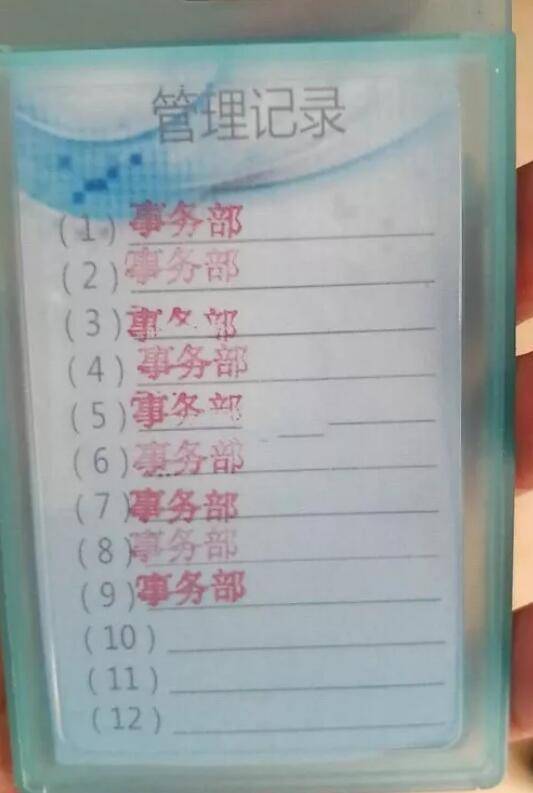 管理记录
(1) 事务部
(2) 事务部
(3) 事务部
(4) 事务部
(5) 事务部
(6) 事务部
(7) 事务部
(8) 事务部
(9) 事务部
(10)
(11)
(12)